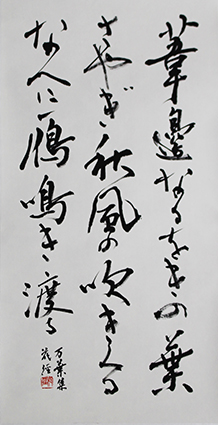 葦邊なるをぎの葉
さやぎ秋風の吹きくる
なへに雁鳴き渡る
万葉集